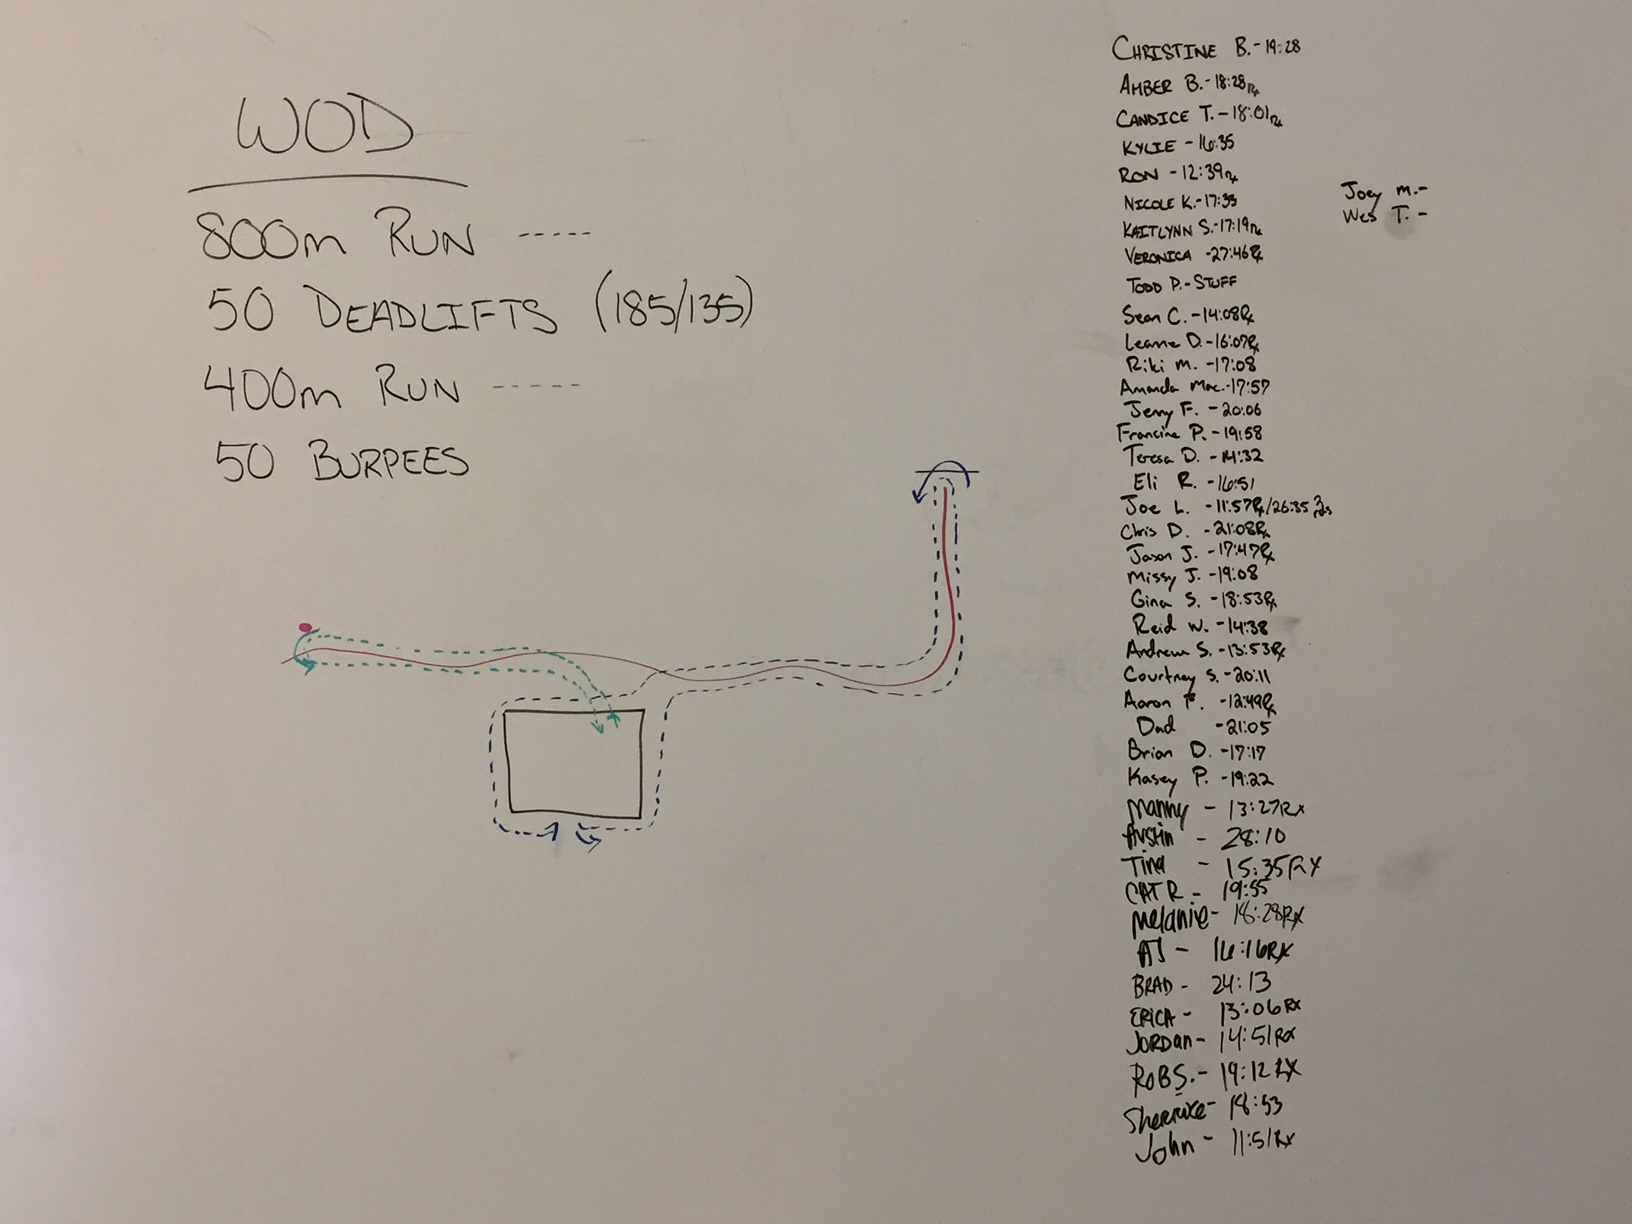 WOD
800m RUN -----
50 DEADLIFTS (185/135)
400m RUN -----
50 BURPEES
CHRISTINE B. - 19:28
AMBER B. - 18:28 Rx
CANDICE T. - 18:01 Rx
KYLIE - 16:35
RON - 12:39 Rx
NICOLE K. - 17:33
KAITLYNN S. - 17:19 Rx
VERONICA - 27:46 Rx
TODD P. - STUFF
Sean C. - 14:08 Rx
Leanne D. - 16:07 Rx
Riki M. - 17:08
Amanda Mac. - 17:57
Jerry F. - 20:06
Francine P. - 19:58
Teresa D. - 14:32
Eli R. - 16:51
Joe L. - 11:57 Rx / 26:35
Chris D. - 21:08 Rx
Jason J. - 17:47 Rx
Missy J. - 19:08
Gina S. - 18:53 Rx
Reid W. - 14:38
Andrew S. - 13:53 Rx
Courtney S. - 20:11
Aaron F. - 12:49 Rx
Dad - 21:05
Brian D. - 17:17
Kasey P. - 19:22
Manny - 13:27 Rx
Austin - 28:10
Tina - 15:35 RX
CAT R - 19:55
Melanie - 18:28 Rx
AJ - 16:16 Rx
BRAD - 24:13
ERICA - 13:06 Rx
JORDAN - 14:51 Rx
ROB S. - 19:12 RX
18:53
John - 11:51 Rx
Joey M. -
Wes T. -